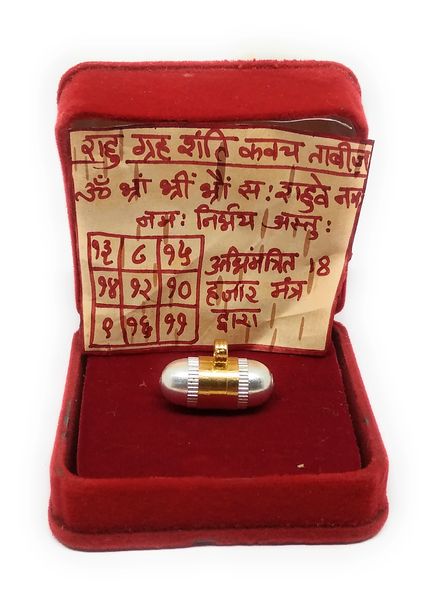 राहु ग्रह शंति कवच ताबीज
ॐ भ्रां भ्रीं भ्रौं स: राहुवे नमः
नमः निर्भय अस्तु:
१३ ८ १५
१४ १२ १०
९ १६ ११
अभिमंत्रित 18
हजार मंत्र
द्वारा